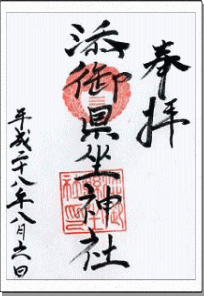 奉拝
添御県坐神社
平成二十八年八月六日